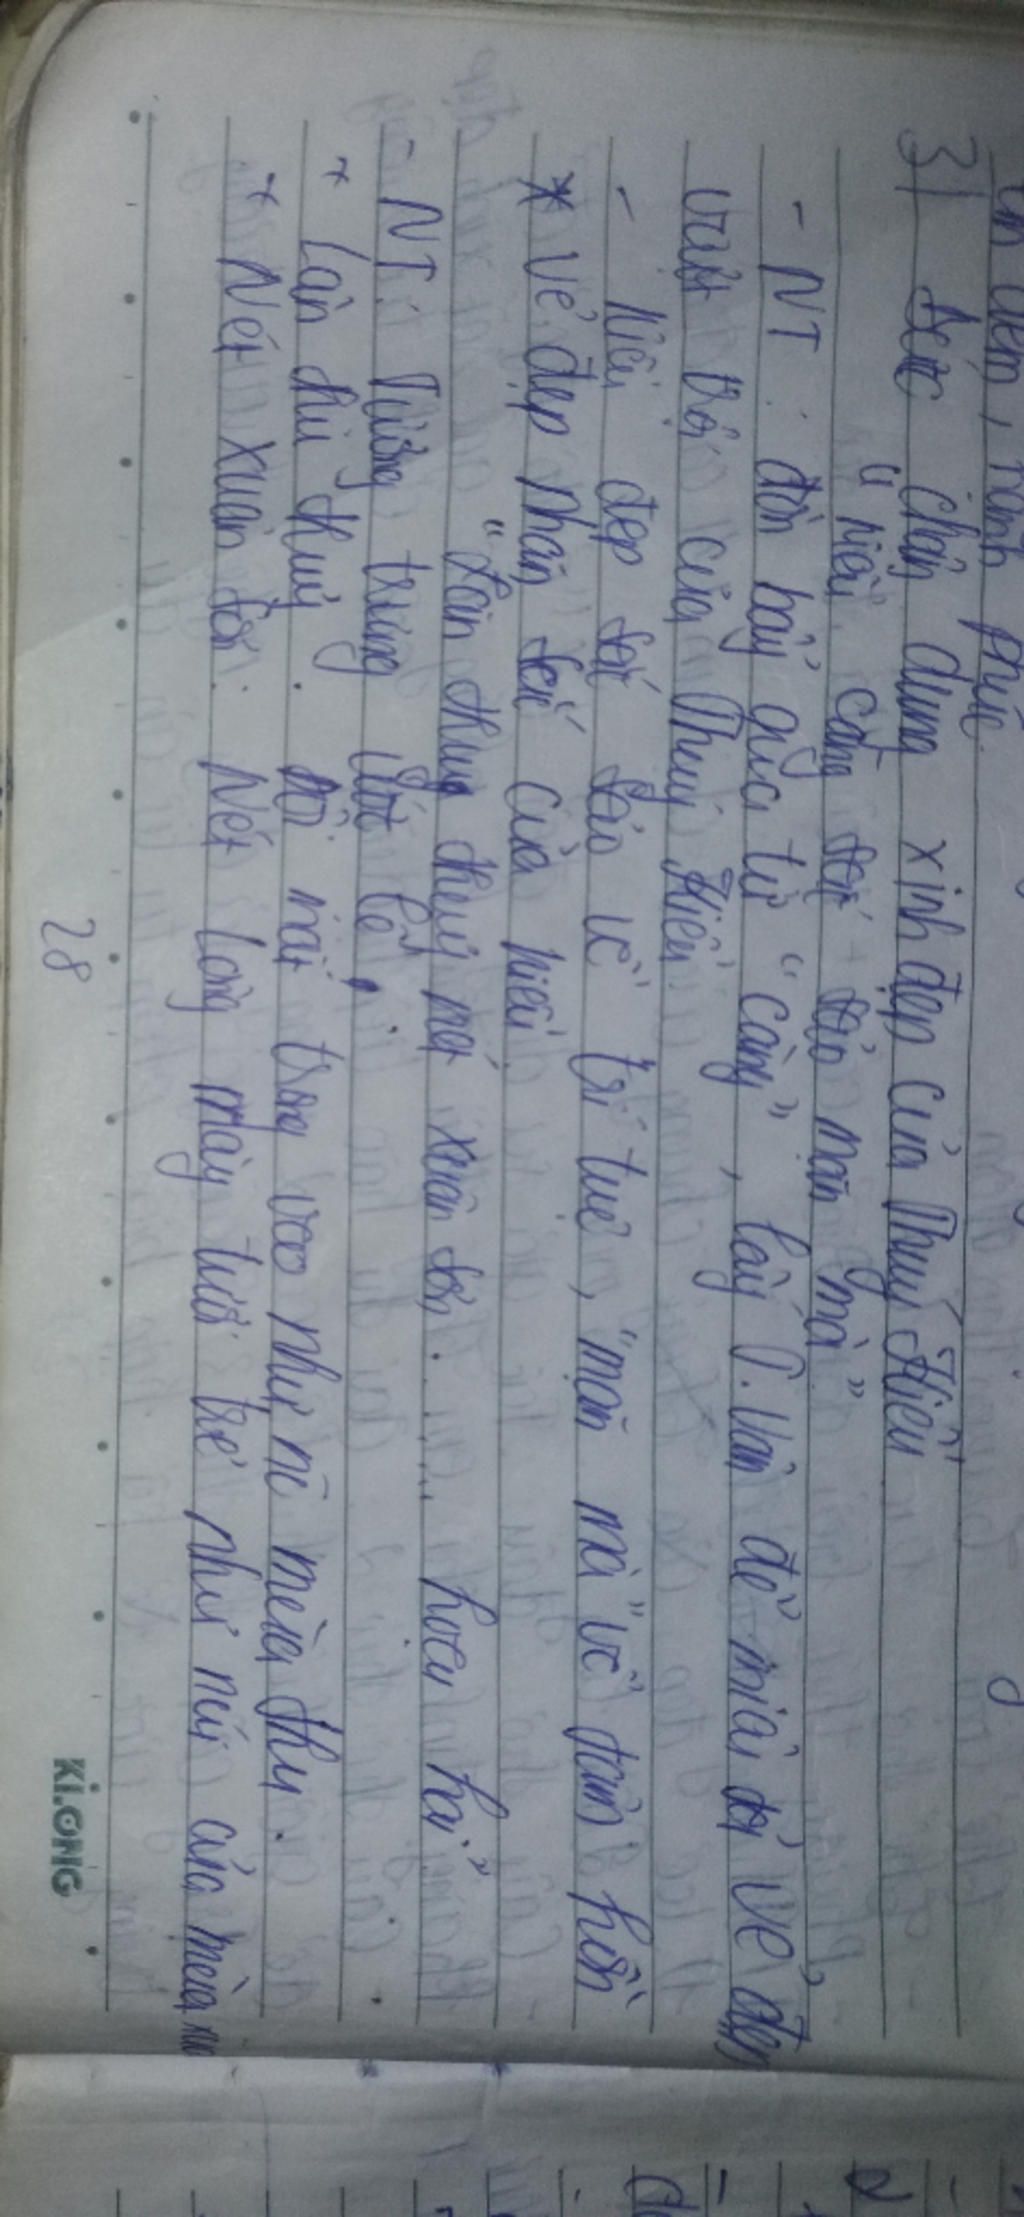 êm đềm, hạnh phúc.
3/ Bức chân dung xinh đẹp của Thuý Kiều
" Kiều càng sắc sảo mặn mà "
- NT : đòn bẩy qua từ " càng " , lấy T. Vân để miêu tả vẻ đẹp
vượt trội của Thuý Kiều
- Kiều đẹp sắc sảo về trí tuệ, " mặn mà " về tâm hồn
* Vẻ đẹp nhan sắc của Kiều
" Làn thu thuỷ nét xuân sơn ... hoạ hai "
- NT : Tượng trưng ước lệ
+ Làn thu thuỷ : đôi mắt trong veo như nc mùa thu .
+ Nét xuân sơn : Nét lông mày tươi trẻ như núi của mùa xuân
28
KI.ONG